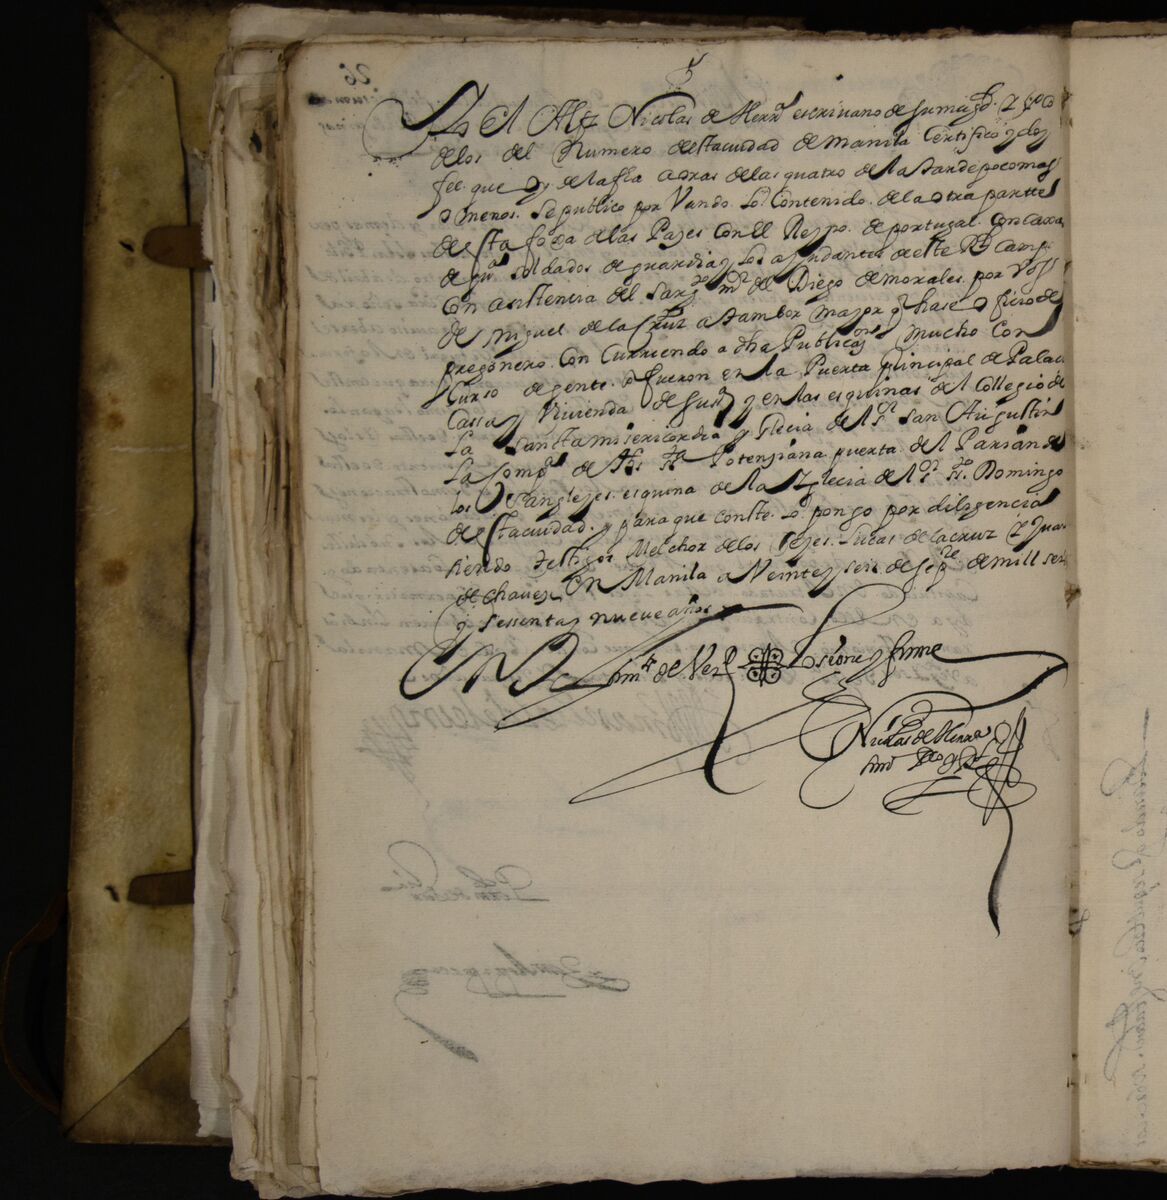 Yo El Alfz Nicolas de Herrᵃ escriuano de su magᵈ. Y Pᵘᶜᵒ
delos del Numero destaciudad de manila Certifico y doy
fee. que oy dela fha aoras delas quatro dela tarde poco mas
o menos. Se publico por Vando. Lo Contenido. dela otra partte
desta foxa delas Pazes Con El Reyno. de portugal. Con Caxa
de guᵃ soldados de guardia y los ayudantes de este Rˡ Campᵒ
Con asistencia del sargᵗᵒ mʳ del Diego de morales. por Voz
de Miguel. dela Cruz atambor mayor q hase oficio de
pregonero. Con Curriendo a dha Publicaᵒⁿ mucho Con
Curso de gente. q fueron en la Puerta principal de Palacᵒ
Cassa y Vivienda de su sᵃ y en las esquinas del Collegio de
La santa misericordia y Iglecia de N. P. San Augustin
La Compᵃ de Jhs Sᵗᵃ Potenciana puerta del Parian de
los Sangleyes. esquina de la Yglecia de N. P. Sᵗᵒ. Domingo
desta ciudad. y para que conste. Lo pongo por diligencia
siendo testigos Melchor delos Reyes. Lucas dela cruz Y Juaⁿ
de chaues En Manila a Veinte y seis de sepᵉ de mill seisᵒˢ
y sessenta y nueue años
en testimᵒ de Verᵈ Lo signe y firme
Nicolas de Herrera